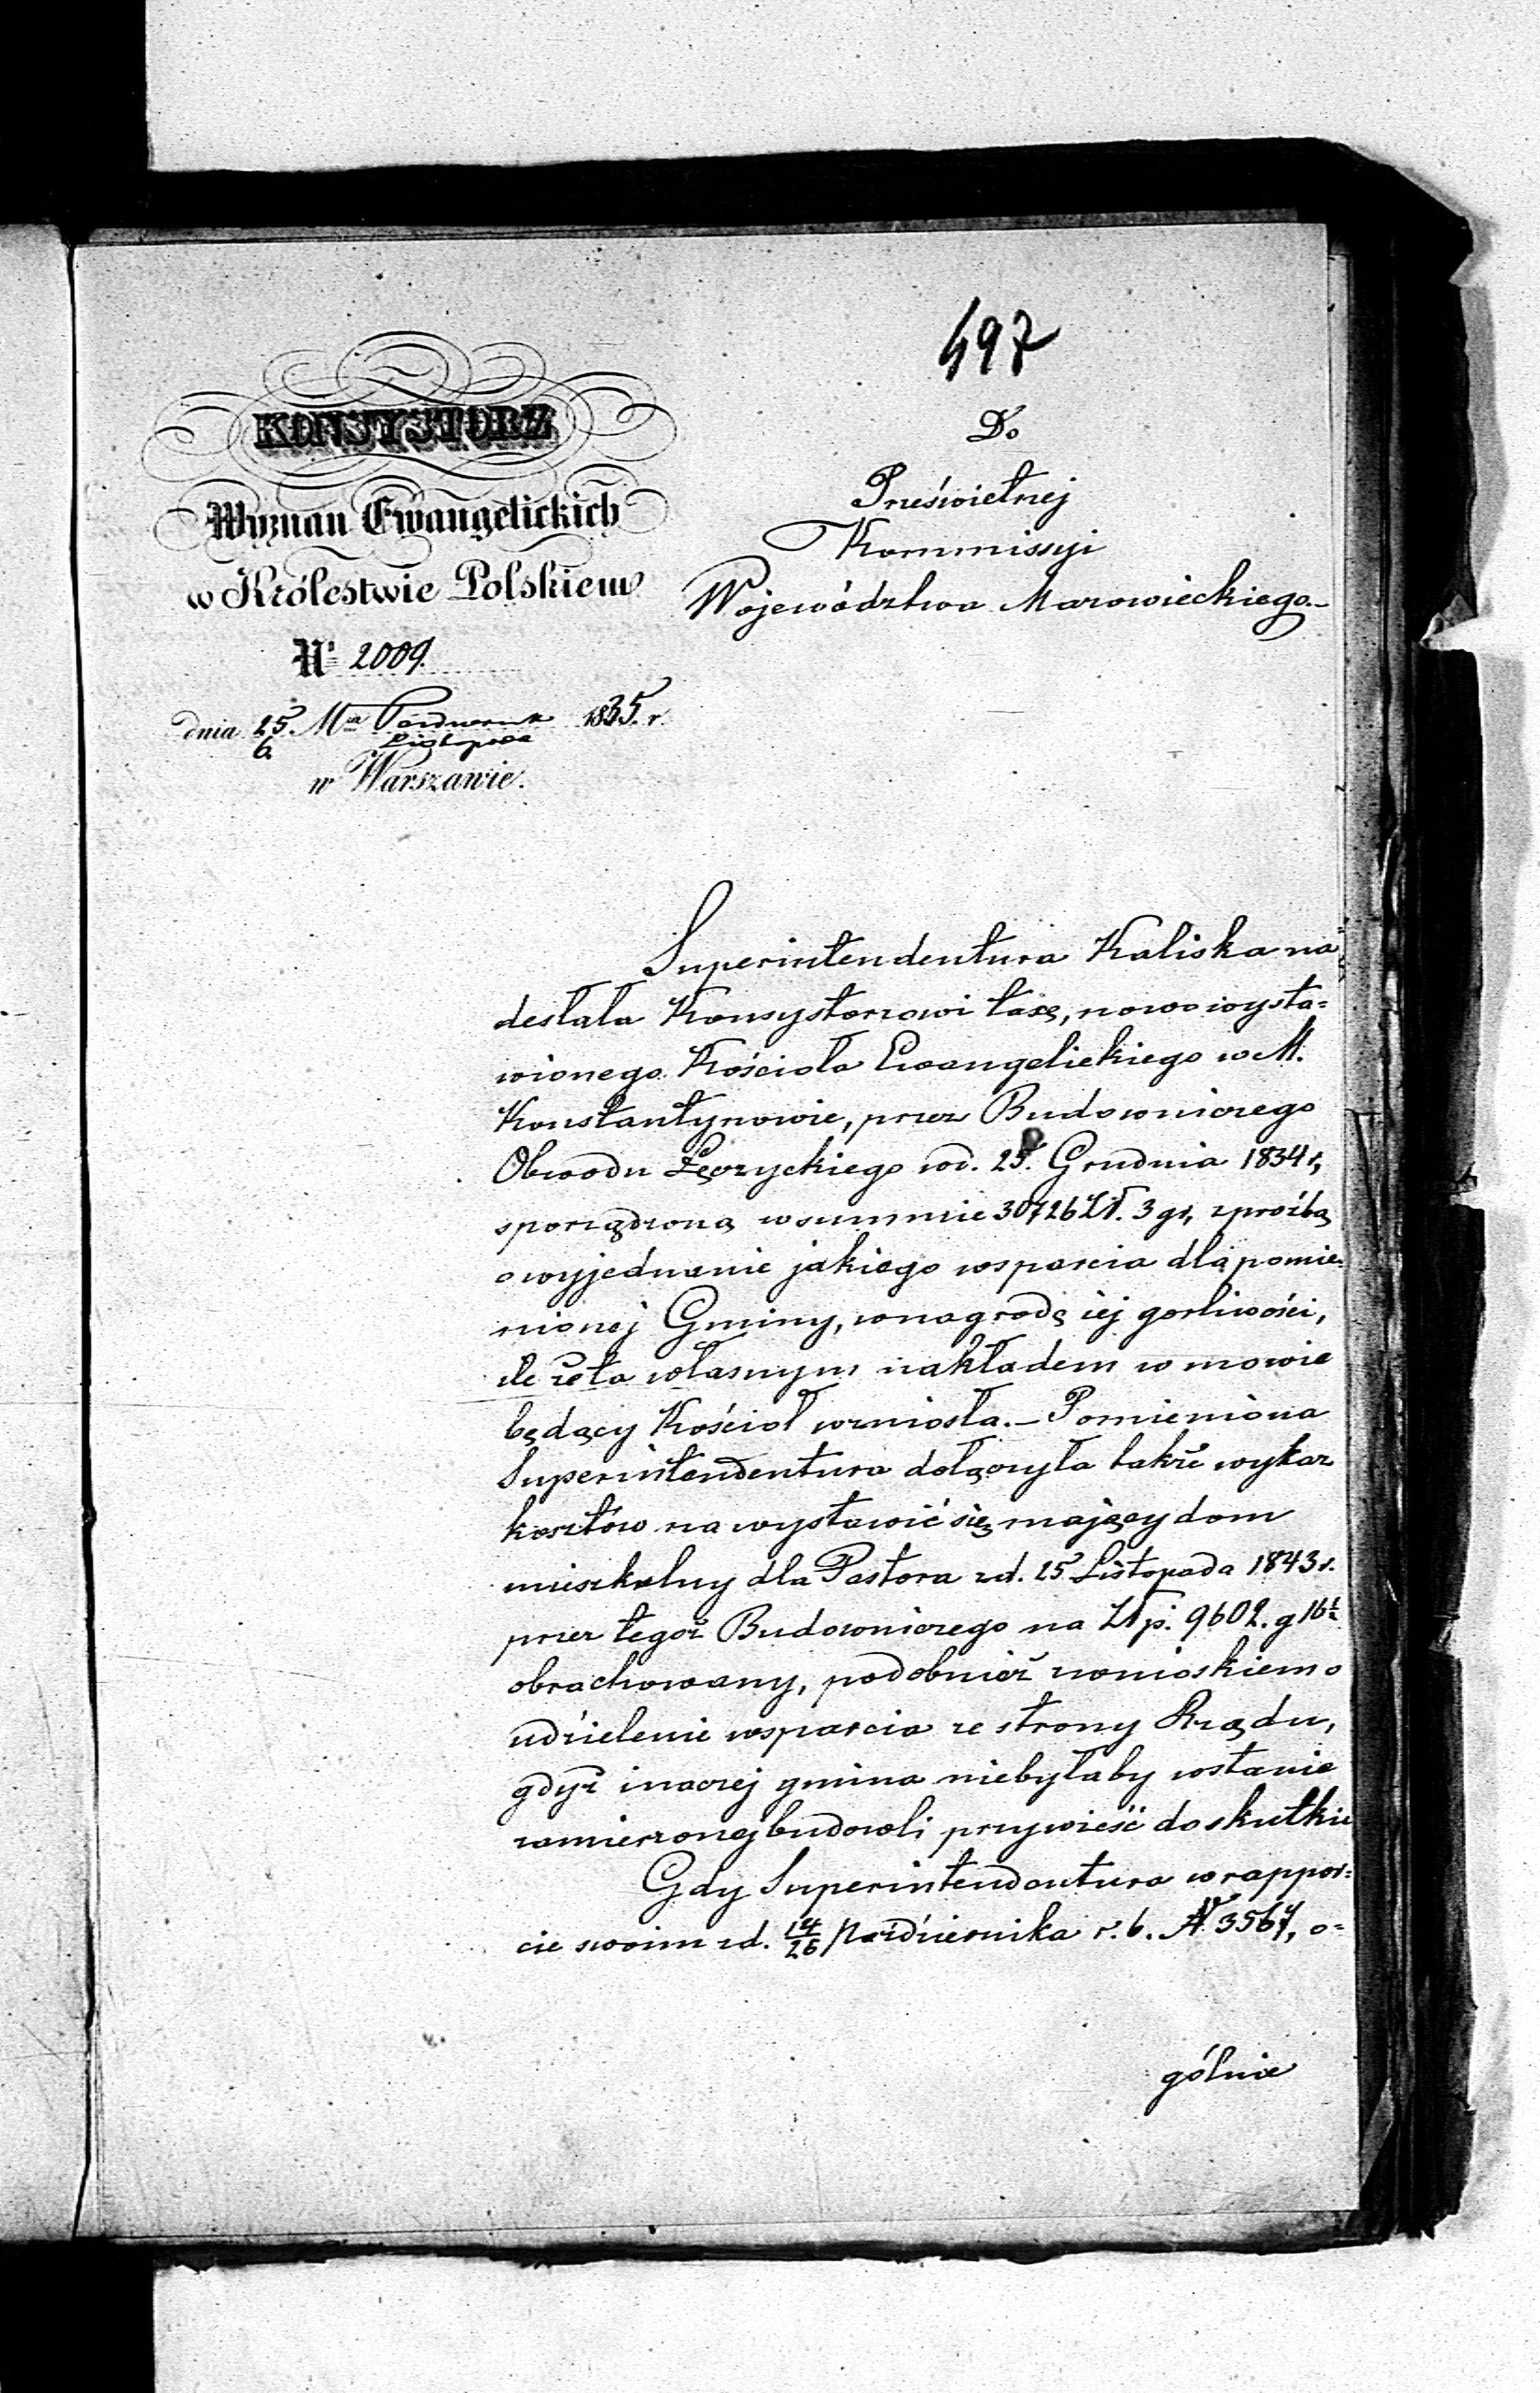 497
KONSYSTORZ
Wyznań Ewangelickich
w Królestwie Polskiem
Nr 2009.
dnia 25. Mca Październik 1835. r.
6. Listopada
w Warszawie.
Do
Prześwietnej
Kommissyi
Województwa Mazowieckiego.
Superintendentura Kaliska na
desłała Konsystorzowi taxę, nowo wysta=
wionego Kościoła Ewangelickiego w M.
Konstantynowie, przez Budowniczego
Obwodu Łęczyckiego w d. 25. Grudnia 1834 r,
sporządzoną w summie 30726 Zł. 3 gr, z prośbą
o wyjednanie jakiego wsparcia dla pomie=
nionej Gminy, w nagrodę iej gorliwości,
ile że ta własnym nakładem w mowie
będący Kościoł wzniosła. – Pomieniona
Superintendentura dołączyła także wykaz
kosztów na wystawić się mający dom
mieszkalny dla Pastora z d. 25 Listopada 1843 r.
przez tegoż Budowniczego na Złp. 9602. g 16½
obrachowany, podobnież z wnioskiem o
udzielenie wsparcia ze strony Rządu,
gdyż inaczej gmina niebyłaby wstanie
zamierzonej budowli przywieść do skutku
Gdy Superintendentura w rappor=
cie swoim z d. 14/26 Października r. b. N. 3567, o=
gólnie